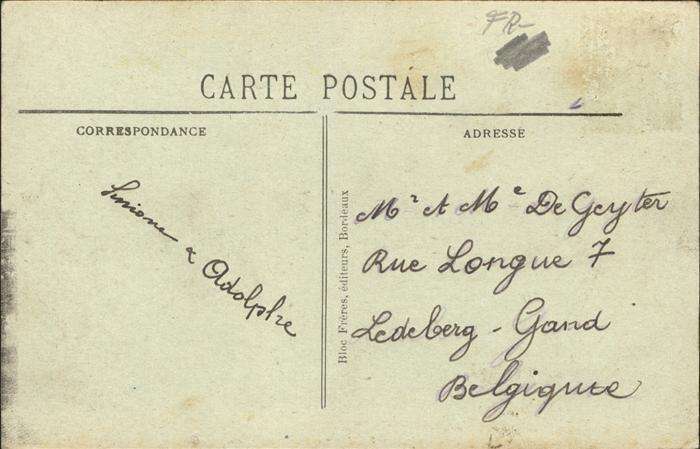 FR-
CARTE POSTALE
CORRESPONDANCE
ADRESSE
Simone & Adolphe
Bloc Frères, éditeurs, Bordeaux
Mr et Me De Geyter
Rue Longue 7
Ledeberg - Gand
Belgique